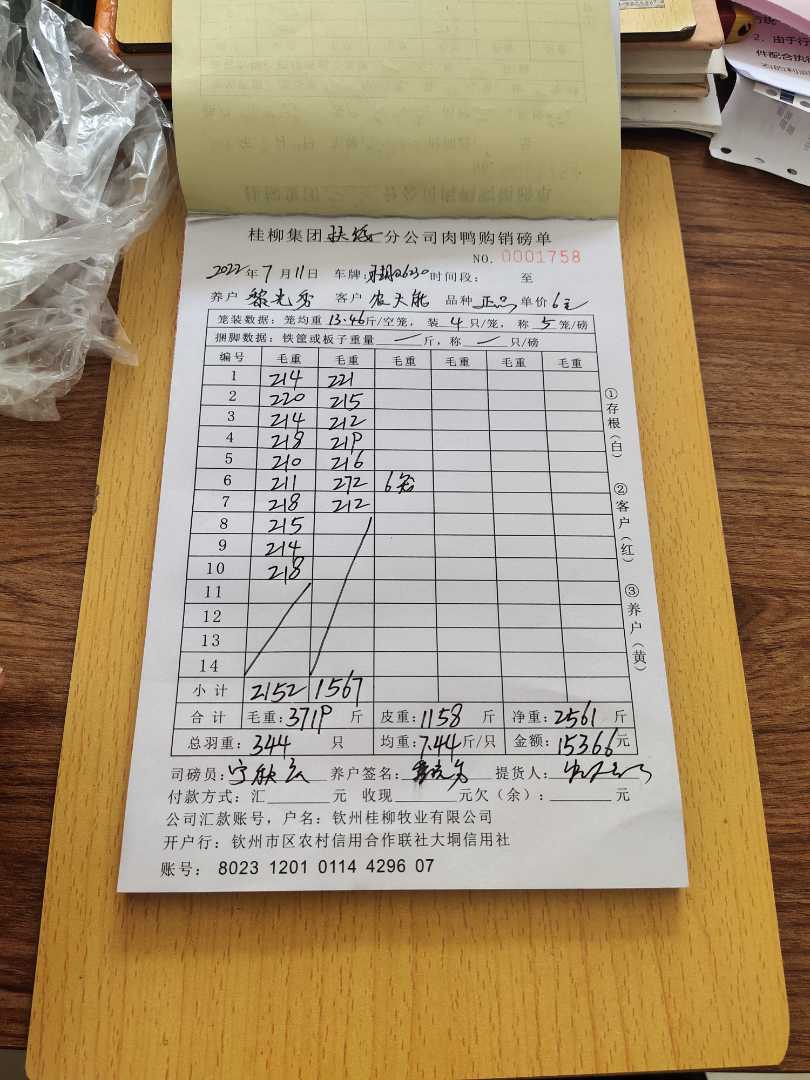 2、由于行
件配合执行
桂柳集团扶绥分公司肉鸭购销磅单
NO. 0001758
2022年7月11日 车牌: 时间段: 至
养户 黎光秀 客户 农天能 品种 正品 单价 6元
笼装数据: 笼均重 13.46斤/空笼, 装 4 只/笼, 称 5 笼/磅
捆脚数据: 铁筐或板子重量 — 斤, 称 — 只/磅
编号 毛重 毛重 毛重 毛重 毛重 毛重
1 214 221
2 220 215
3 214 212
4 218 219
5 210 216
6 211 272 6笼
7 218 212
8 215
9 214
10 218
11
12
13
14
小计 2152 1567
合计 毛重: 3719 斤 皮重: 1158 斤 净重: 2561 斤
总羽重: 344 只 均重: 7.44斤/只 金额: 15366元
司磅员: 养户签名: 提货人:
付款方式: 汇 元 收现 元欠(余): 元
公司汇款账号, 户名: 钦州桂柳牧业有限公司
开户行: 钦州市区农村信用合作联社大垌信用社
账号: 8023 1201 0114 4296 07
①存根(白)
②客户(红)
③养户(黄)